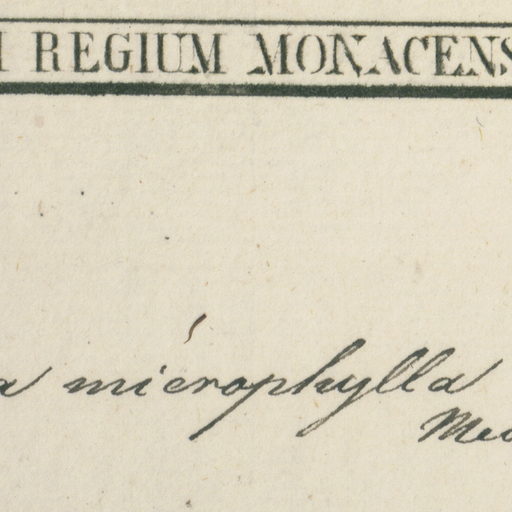 REGIUM MONACENS
a microphylla
Me